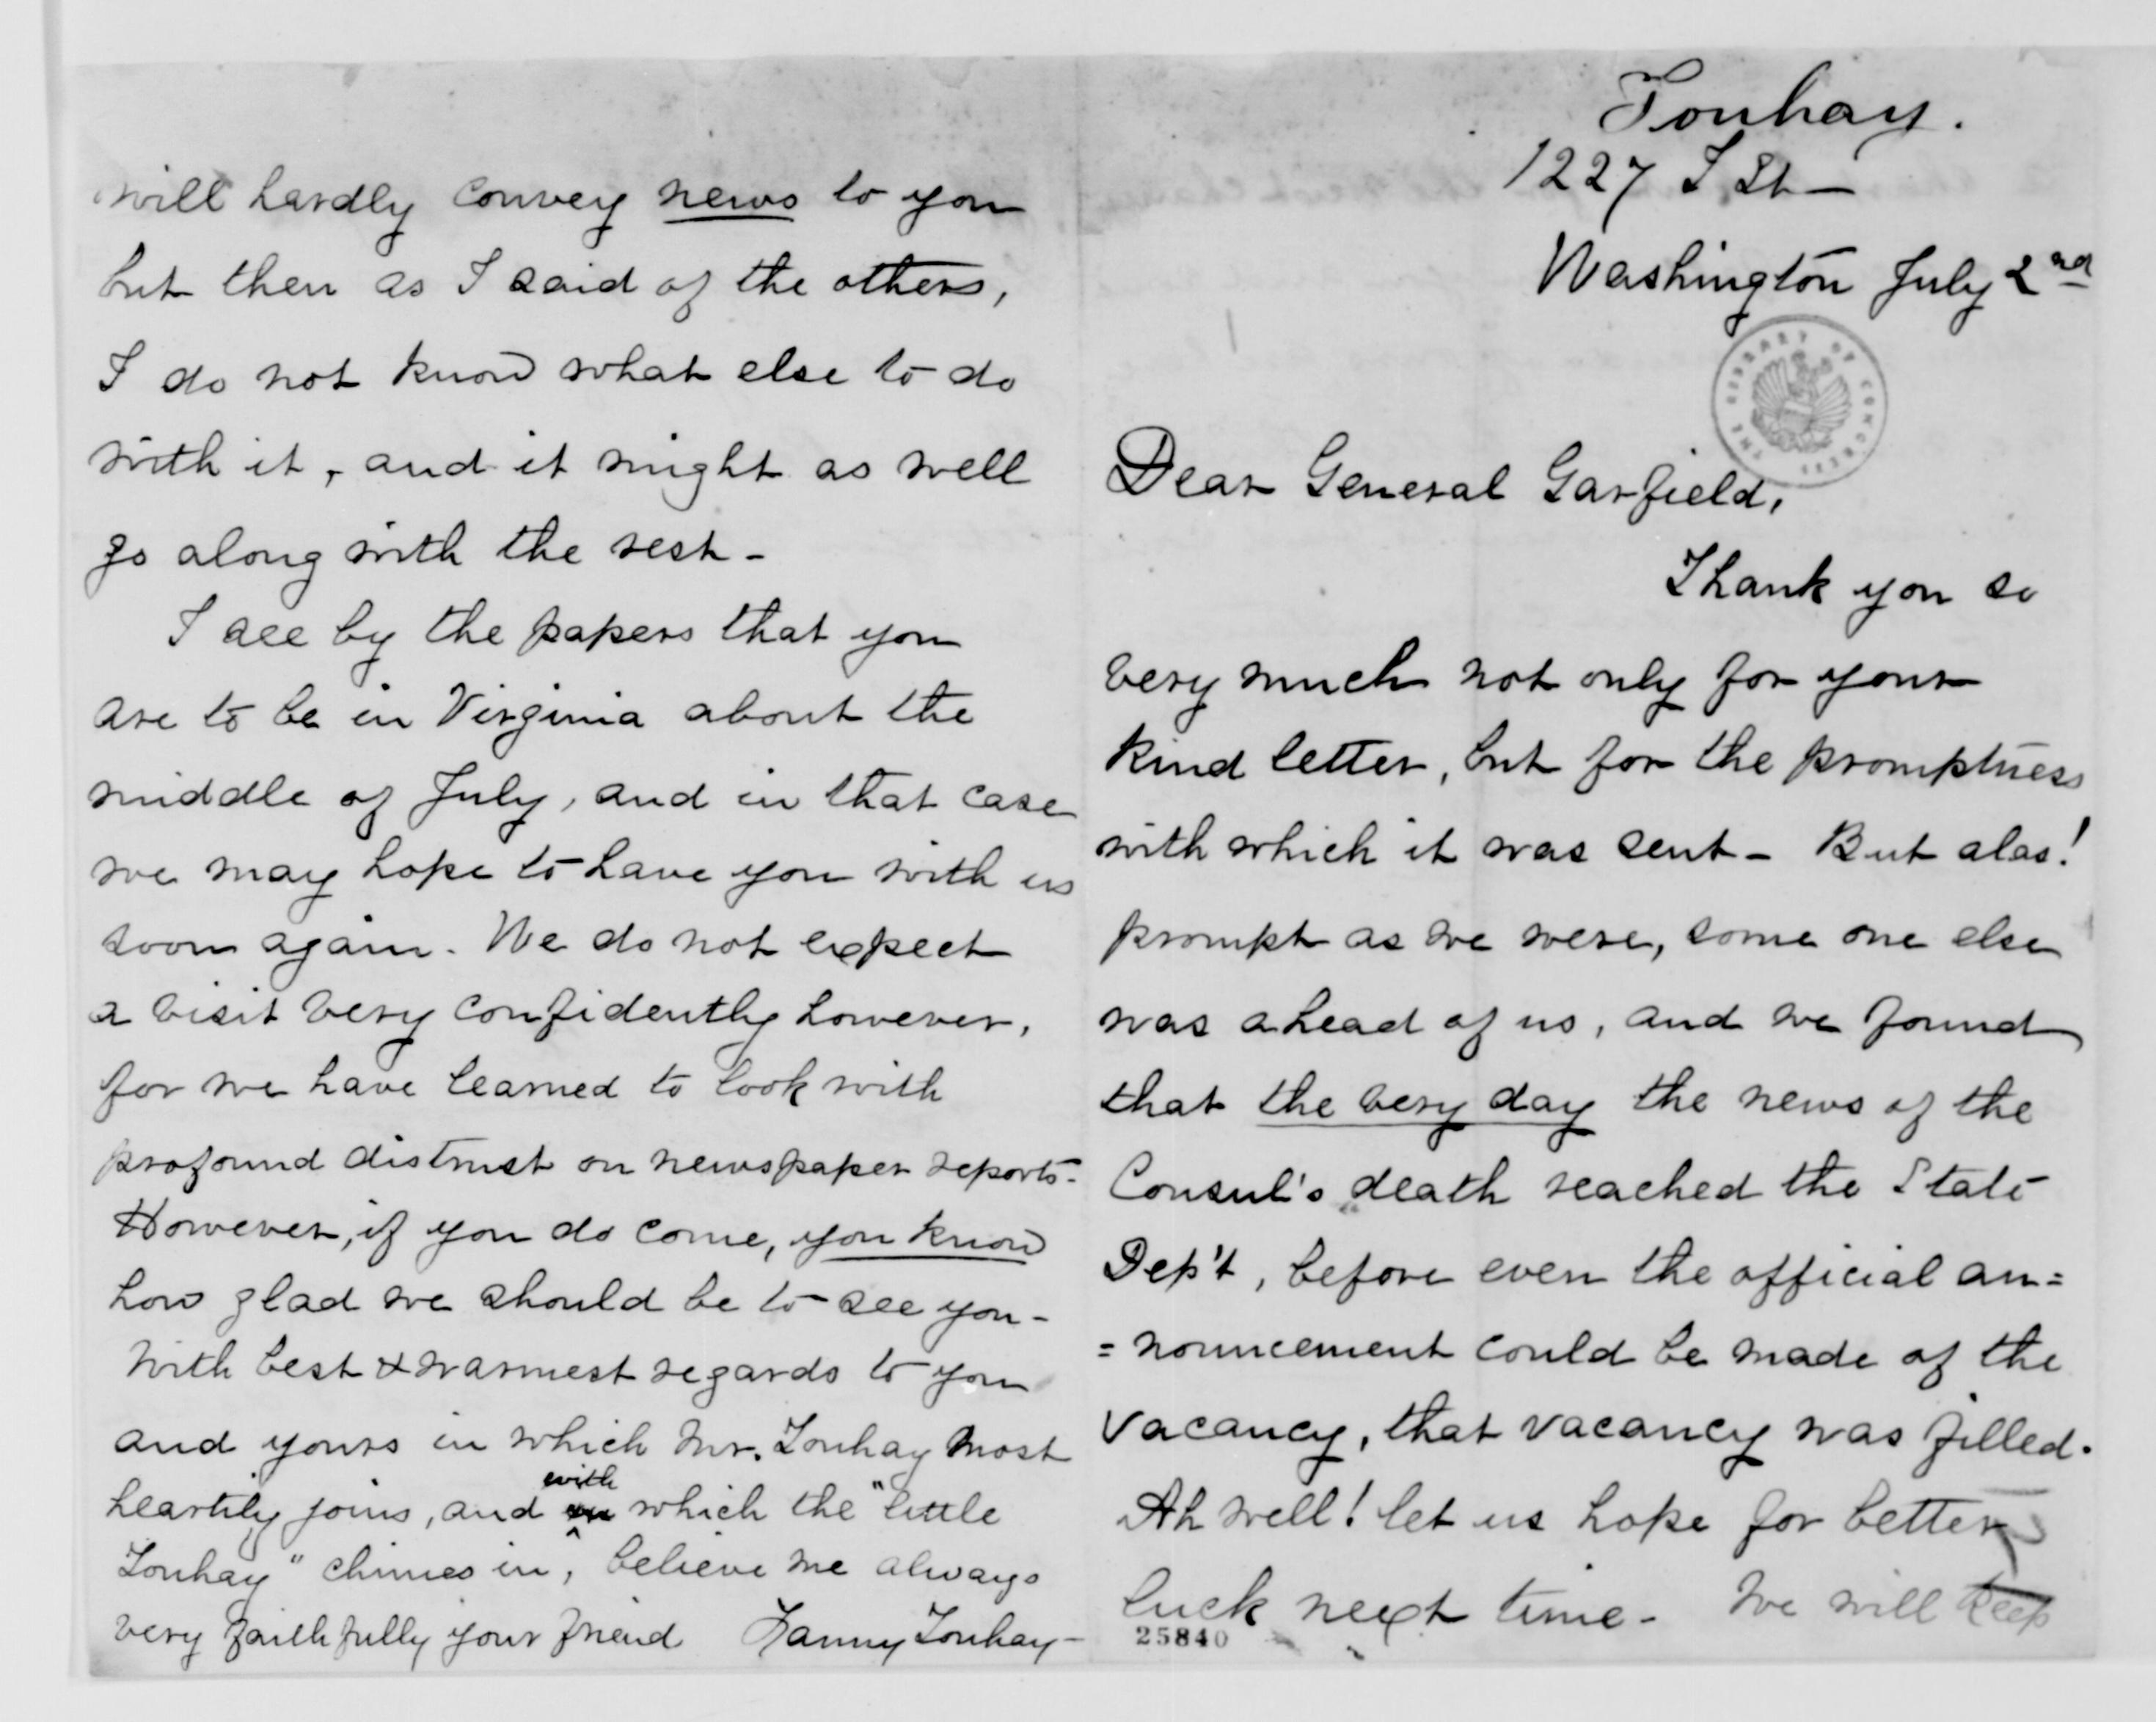 Touhay.
1227 I St—
Washington July 2nd
THE LIBRARY OF CONGRESS
Dear General Garfield,
Thank you so
very much not only for your
kind letter, but for the promptness
with which it was sent - But alas!
prompt as we were, some one else
was ahead of us, and we found
that the very day the news of the
Consul's death reached the State
Dep't, before even the official an=
=nouncement could be made of the
vacancy, that vacancy was filled.
Ah well! let us hope for better
luck next time - We will keep
25840
will hardly convey news to you
but then as I said of the others,
I do not know what else to do
with it, and it might as well
go along with the rest -
I see by the papers that you
are to be in Virginia about the
middle of July, and in that case
we may hope to have you with us
soon again. We do not expect
a visit very confidently however,
for we have learned to look with
profound distrust on newspaper reports -
However, if you do come, you know
how glad we should be to see you -
With best & warmest regards to you
and yours in which Mr. Touhay most
heartily joins, and with which the "little
Touhay" chimes in, believe me always
very faithfully your friend Fanny Touhay -